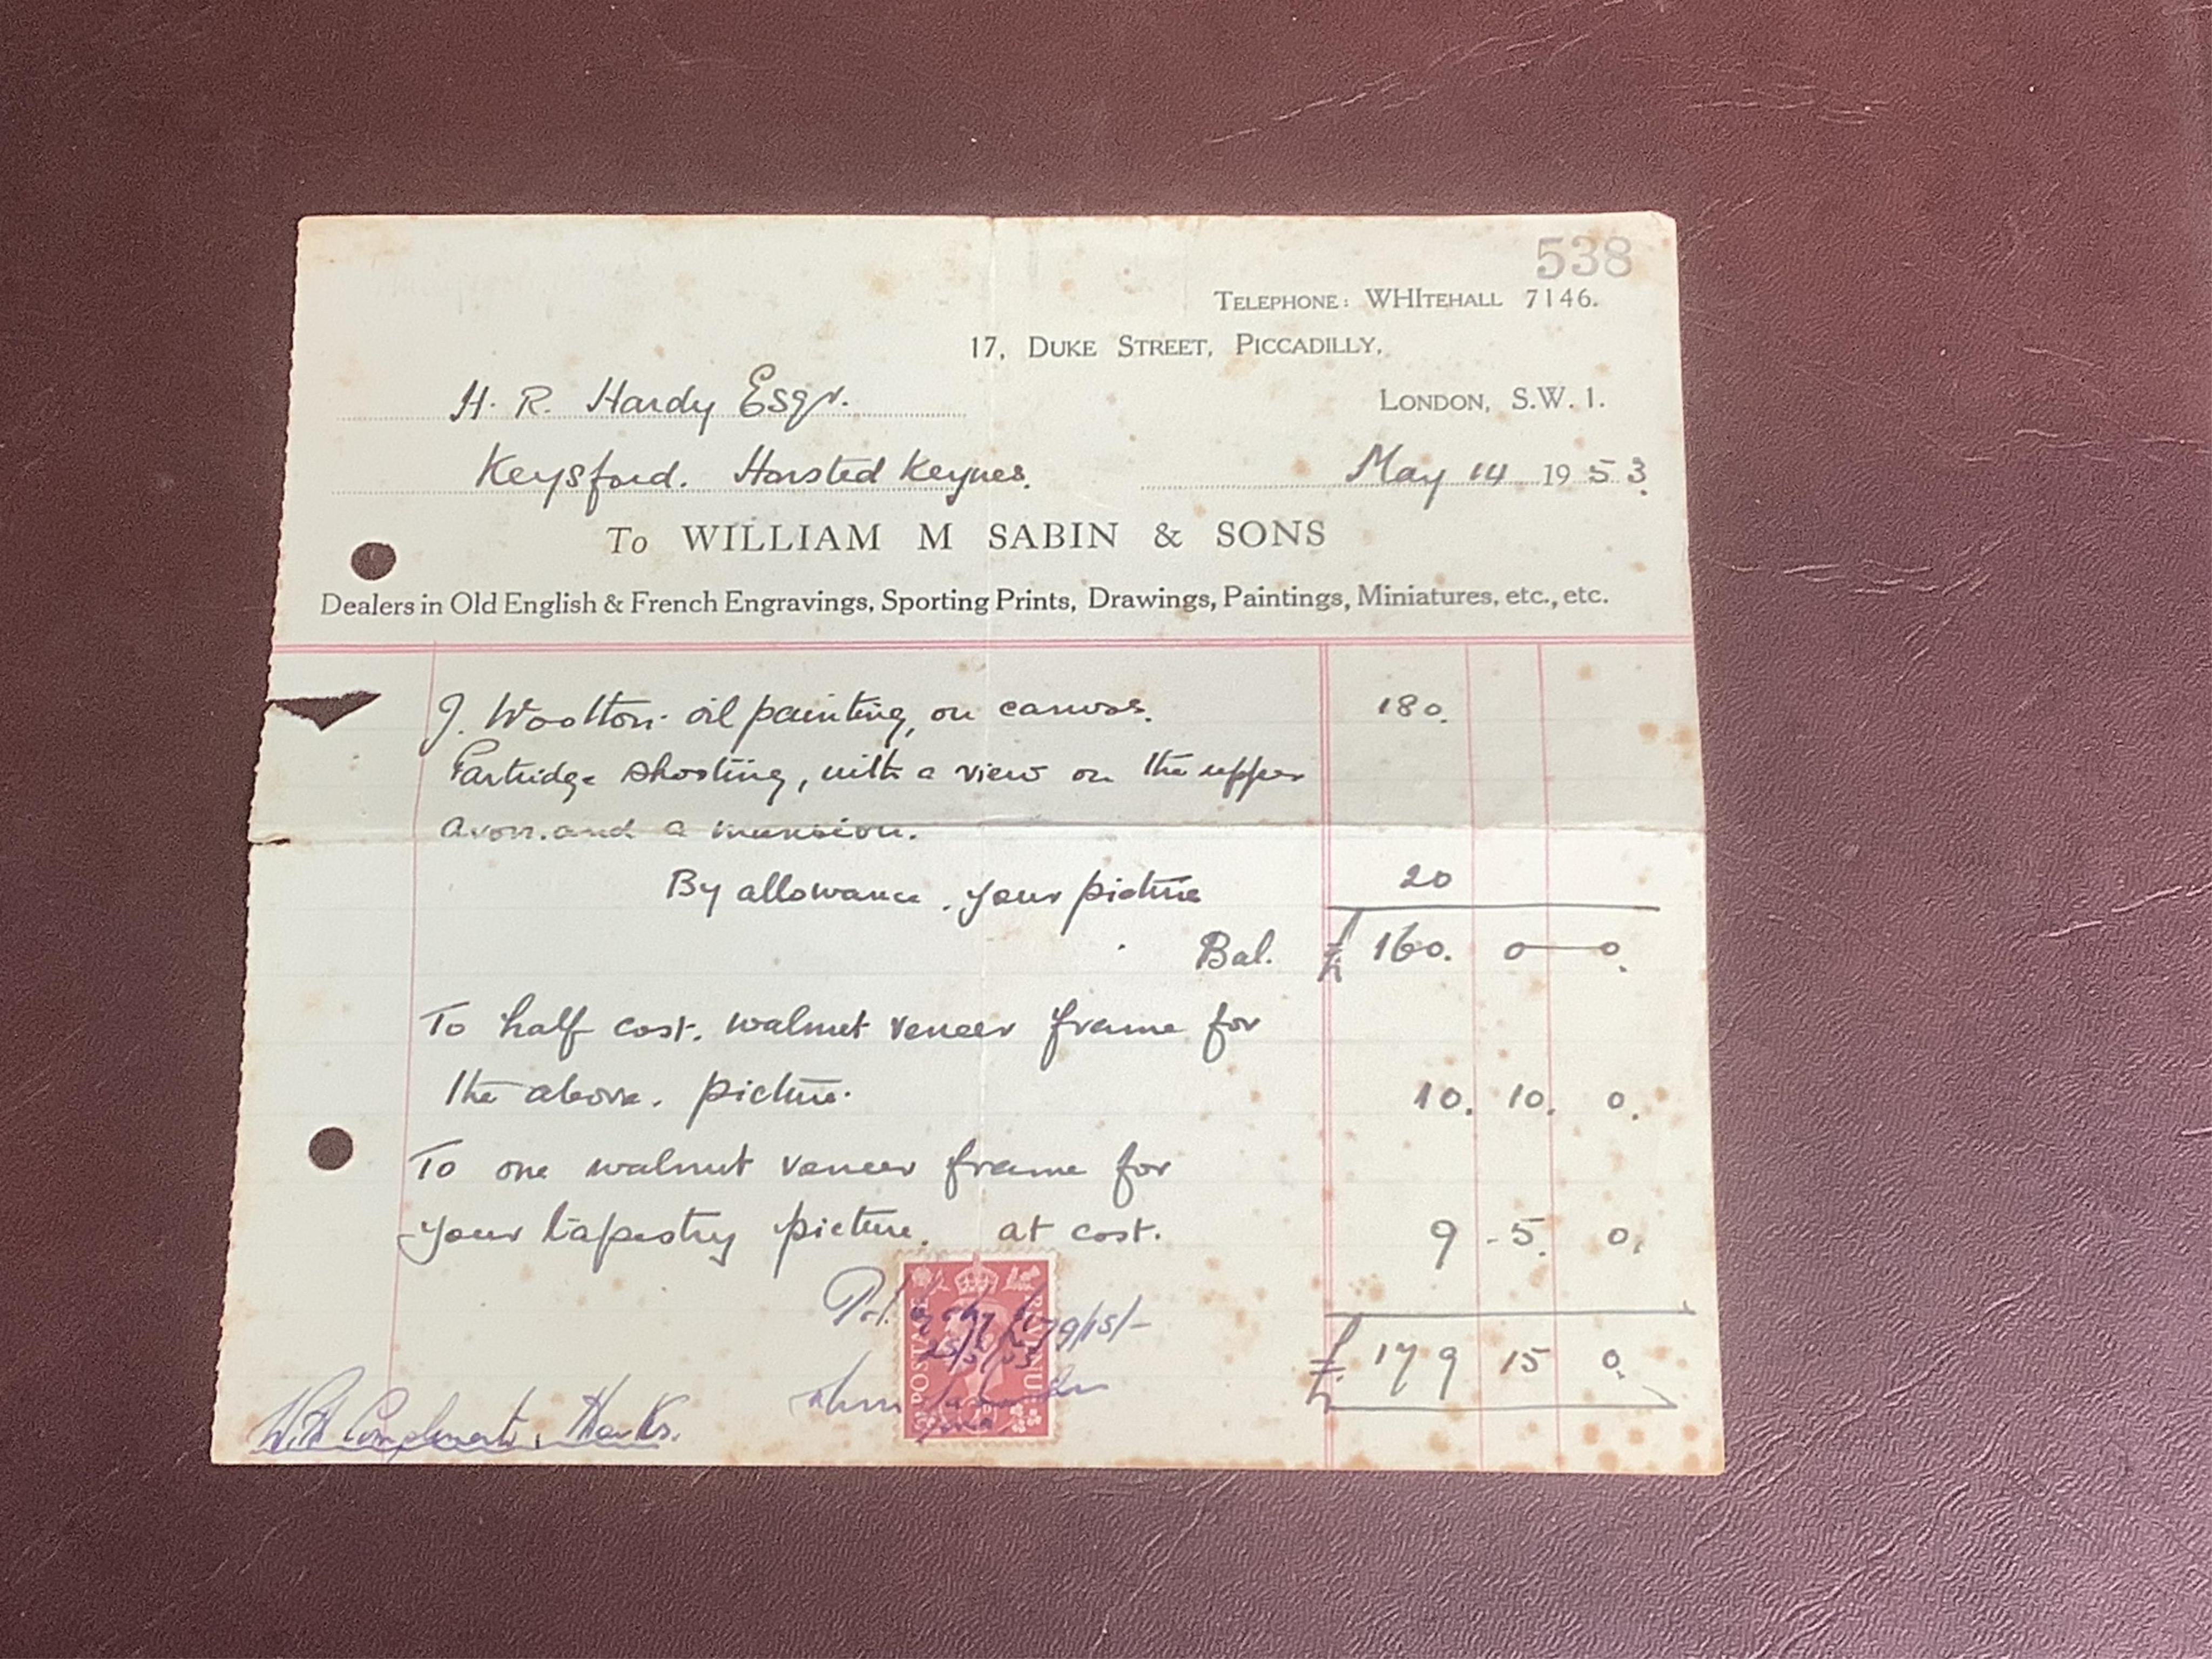 538
TELEPHONE: WHITEHALL 7146.
17, DUKE STREET, PICCADILLY,
H. R. Hardy Esqr.
LONDON, S.W. 1.
Keysford. Horsted Keynes.
May 14 1953.
To WILLIAM M SABIN & SONS
Dealers in Old English & French Engravings, Sporting Prints, Drawings, Paintings, Miniatures, etc., etc.
J. Wootton. oil painting, on canvas. 180.
Partridge shooting, with a view on the upper
Avon. and a mansion.
By allowance. your picture 20
Bal. £ 160. 0—0.
To half cost. walnut veneer frame for
the above. picture. 10. 10. 0.
To one walnut veneer frame for
your tapestry picture. at cost. 9 - 5. 0.
Pd. 179/15/-
POSTAGE REVENUE
£ 179 15 0.
With Compliments, Thanks.